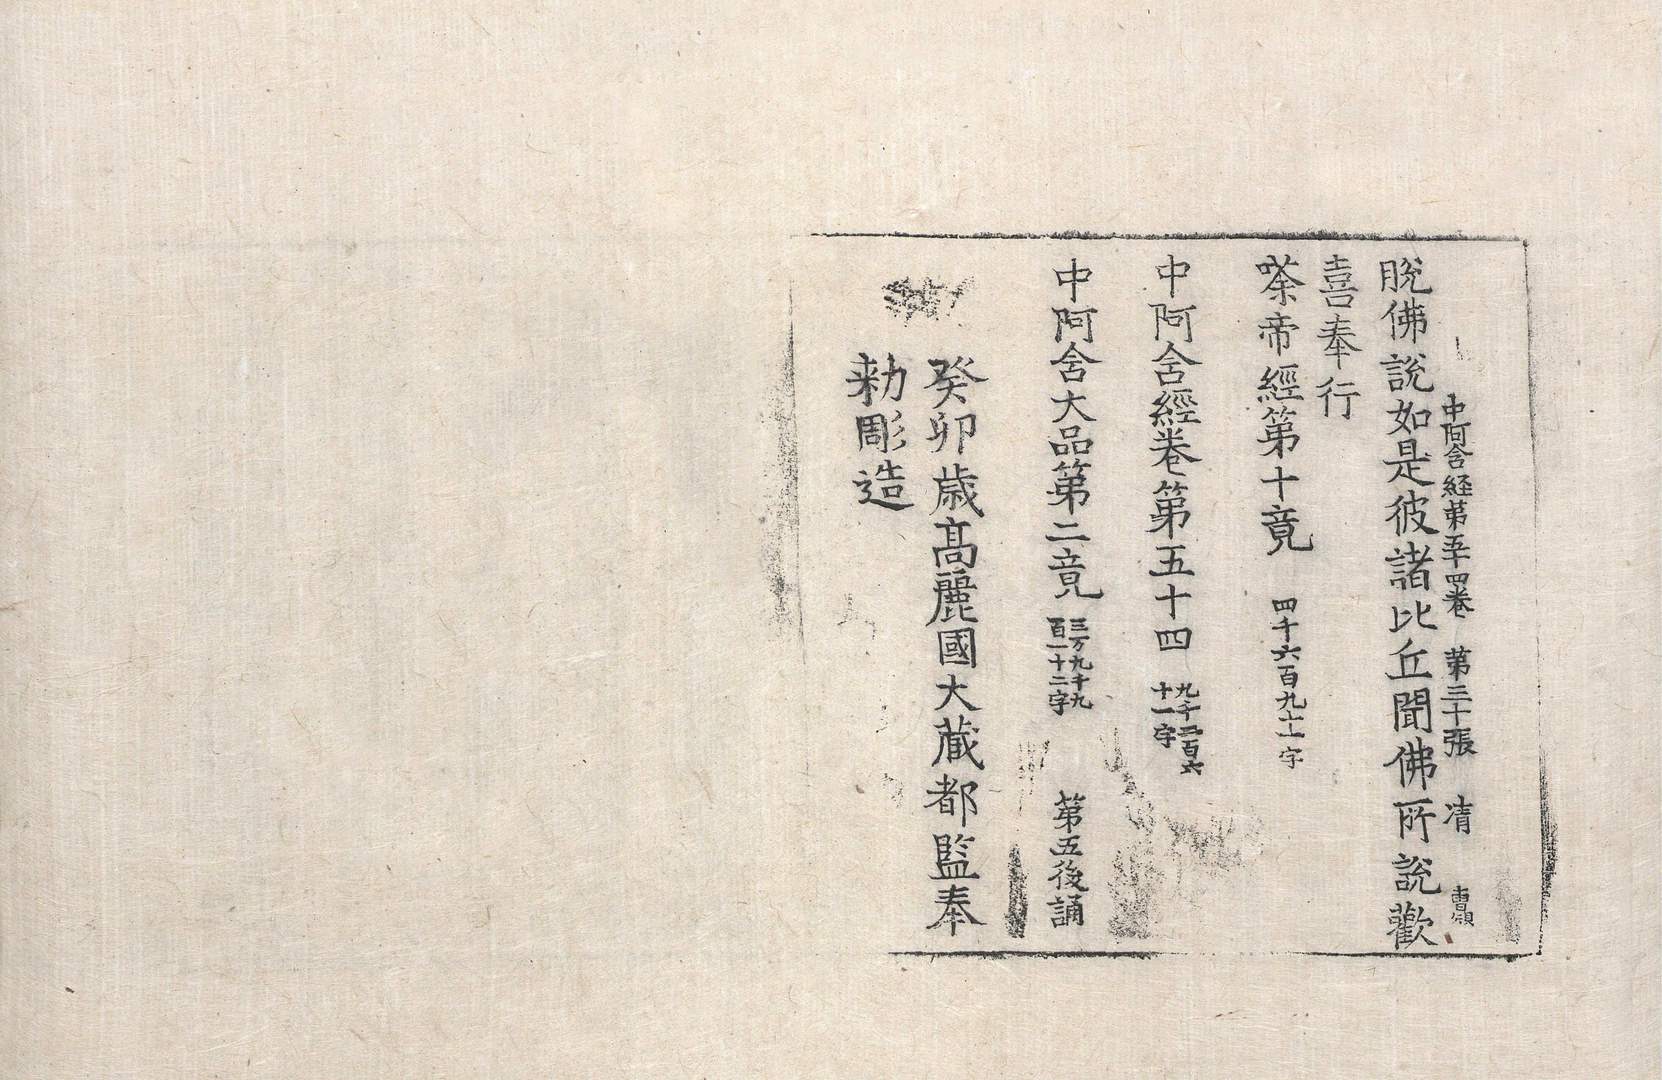 中阿含経第五十四卷 第三十張 凊
脫佛說如是彼諸比丘聞佛所說歡
喜奉行
嗏帝經第十竟 四千六百九十一字
中阿含經卷第五十四 九千三百六十一字
中阿含大品第二竟 三万九千九百一十二字 第五後誦
癸卯歲髙麗國大藏都監奉
勅彫造